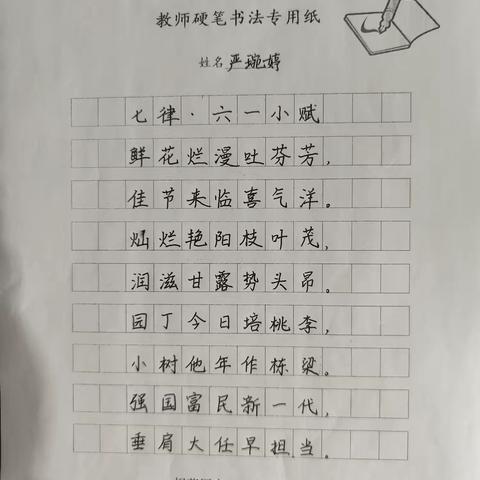 教师硬笔书法专用纸
姓名 严琬婷
七律·六一小赋
鲜花烂漫吐芬芳,
佳节来临喜气洋。
灿烂艳阳枝叶茂,
润滋甘露势头昂。
园丁今日培桃李,
小树他年作栋梁。
强国富民新一代,
垂肩大任早担当。